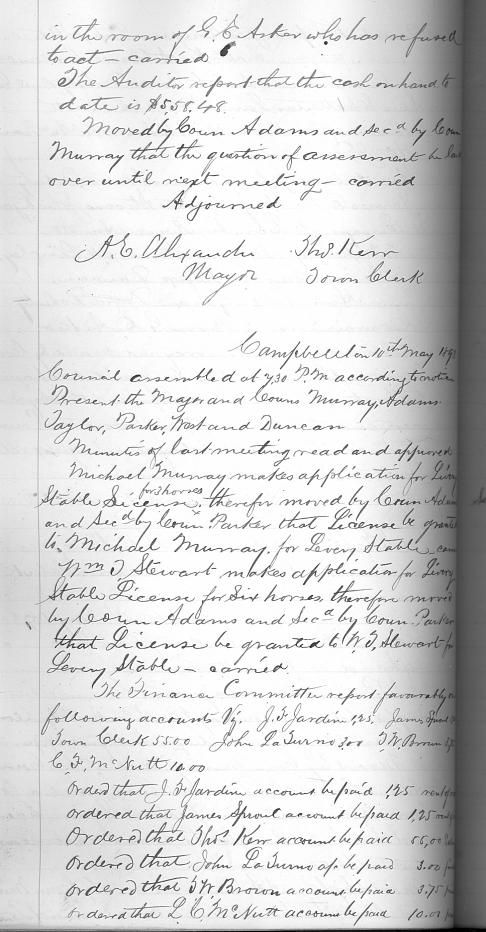 in the room of G. E. Asker who has refused
to act — carried
The Auditor report that the cash on hand to
date is $558.48.
Moved by Coun Adams and Secd by Coun
Murray that the question of assessment be
over until next meeting — carried
Adjourned
A. E. Alexander Thos. Kerr
Mayor Town Clerk
Campbellton 10th May 189
Council assembled at 7.30 P.M according to notice
Present the Mayor and Couns Murray, Adams
Taylor, Parker, West and Duncan
Minutes of last meeting read and approved
Michael Murray makes application for Livery
for 3 horses
Stable License, therefor moved by Coun Adams
and Secd by Coun Parker that License be granted
to Michael Murray, for Levery Stable
Wm T Stewart makes application for Livery
Stable License for Six horses, therefore moved
by Coun Adams and Secd by Coun Parker
that License be granted to W. T. Stewart for
Levery Stable — carried.
The Finance Committee report favourably
following accounts Viz. J. F Jardine 1.25. James Sproul
Town Clerk 55.00 John LaTurno 3.00 T. W. Brown
C. F. McNutt 10.00
Orded that J. F Jardine account be paid 1.25
ordered that James Sproul account be paid 1.25
Ordered that Thos. Kerr account be paid 55.00
ordered that John LaTurno a/c be paid 3.00
ordered that T W Brown account be paid 3.75
ordered that L. C. McNutt account be paid 10.00